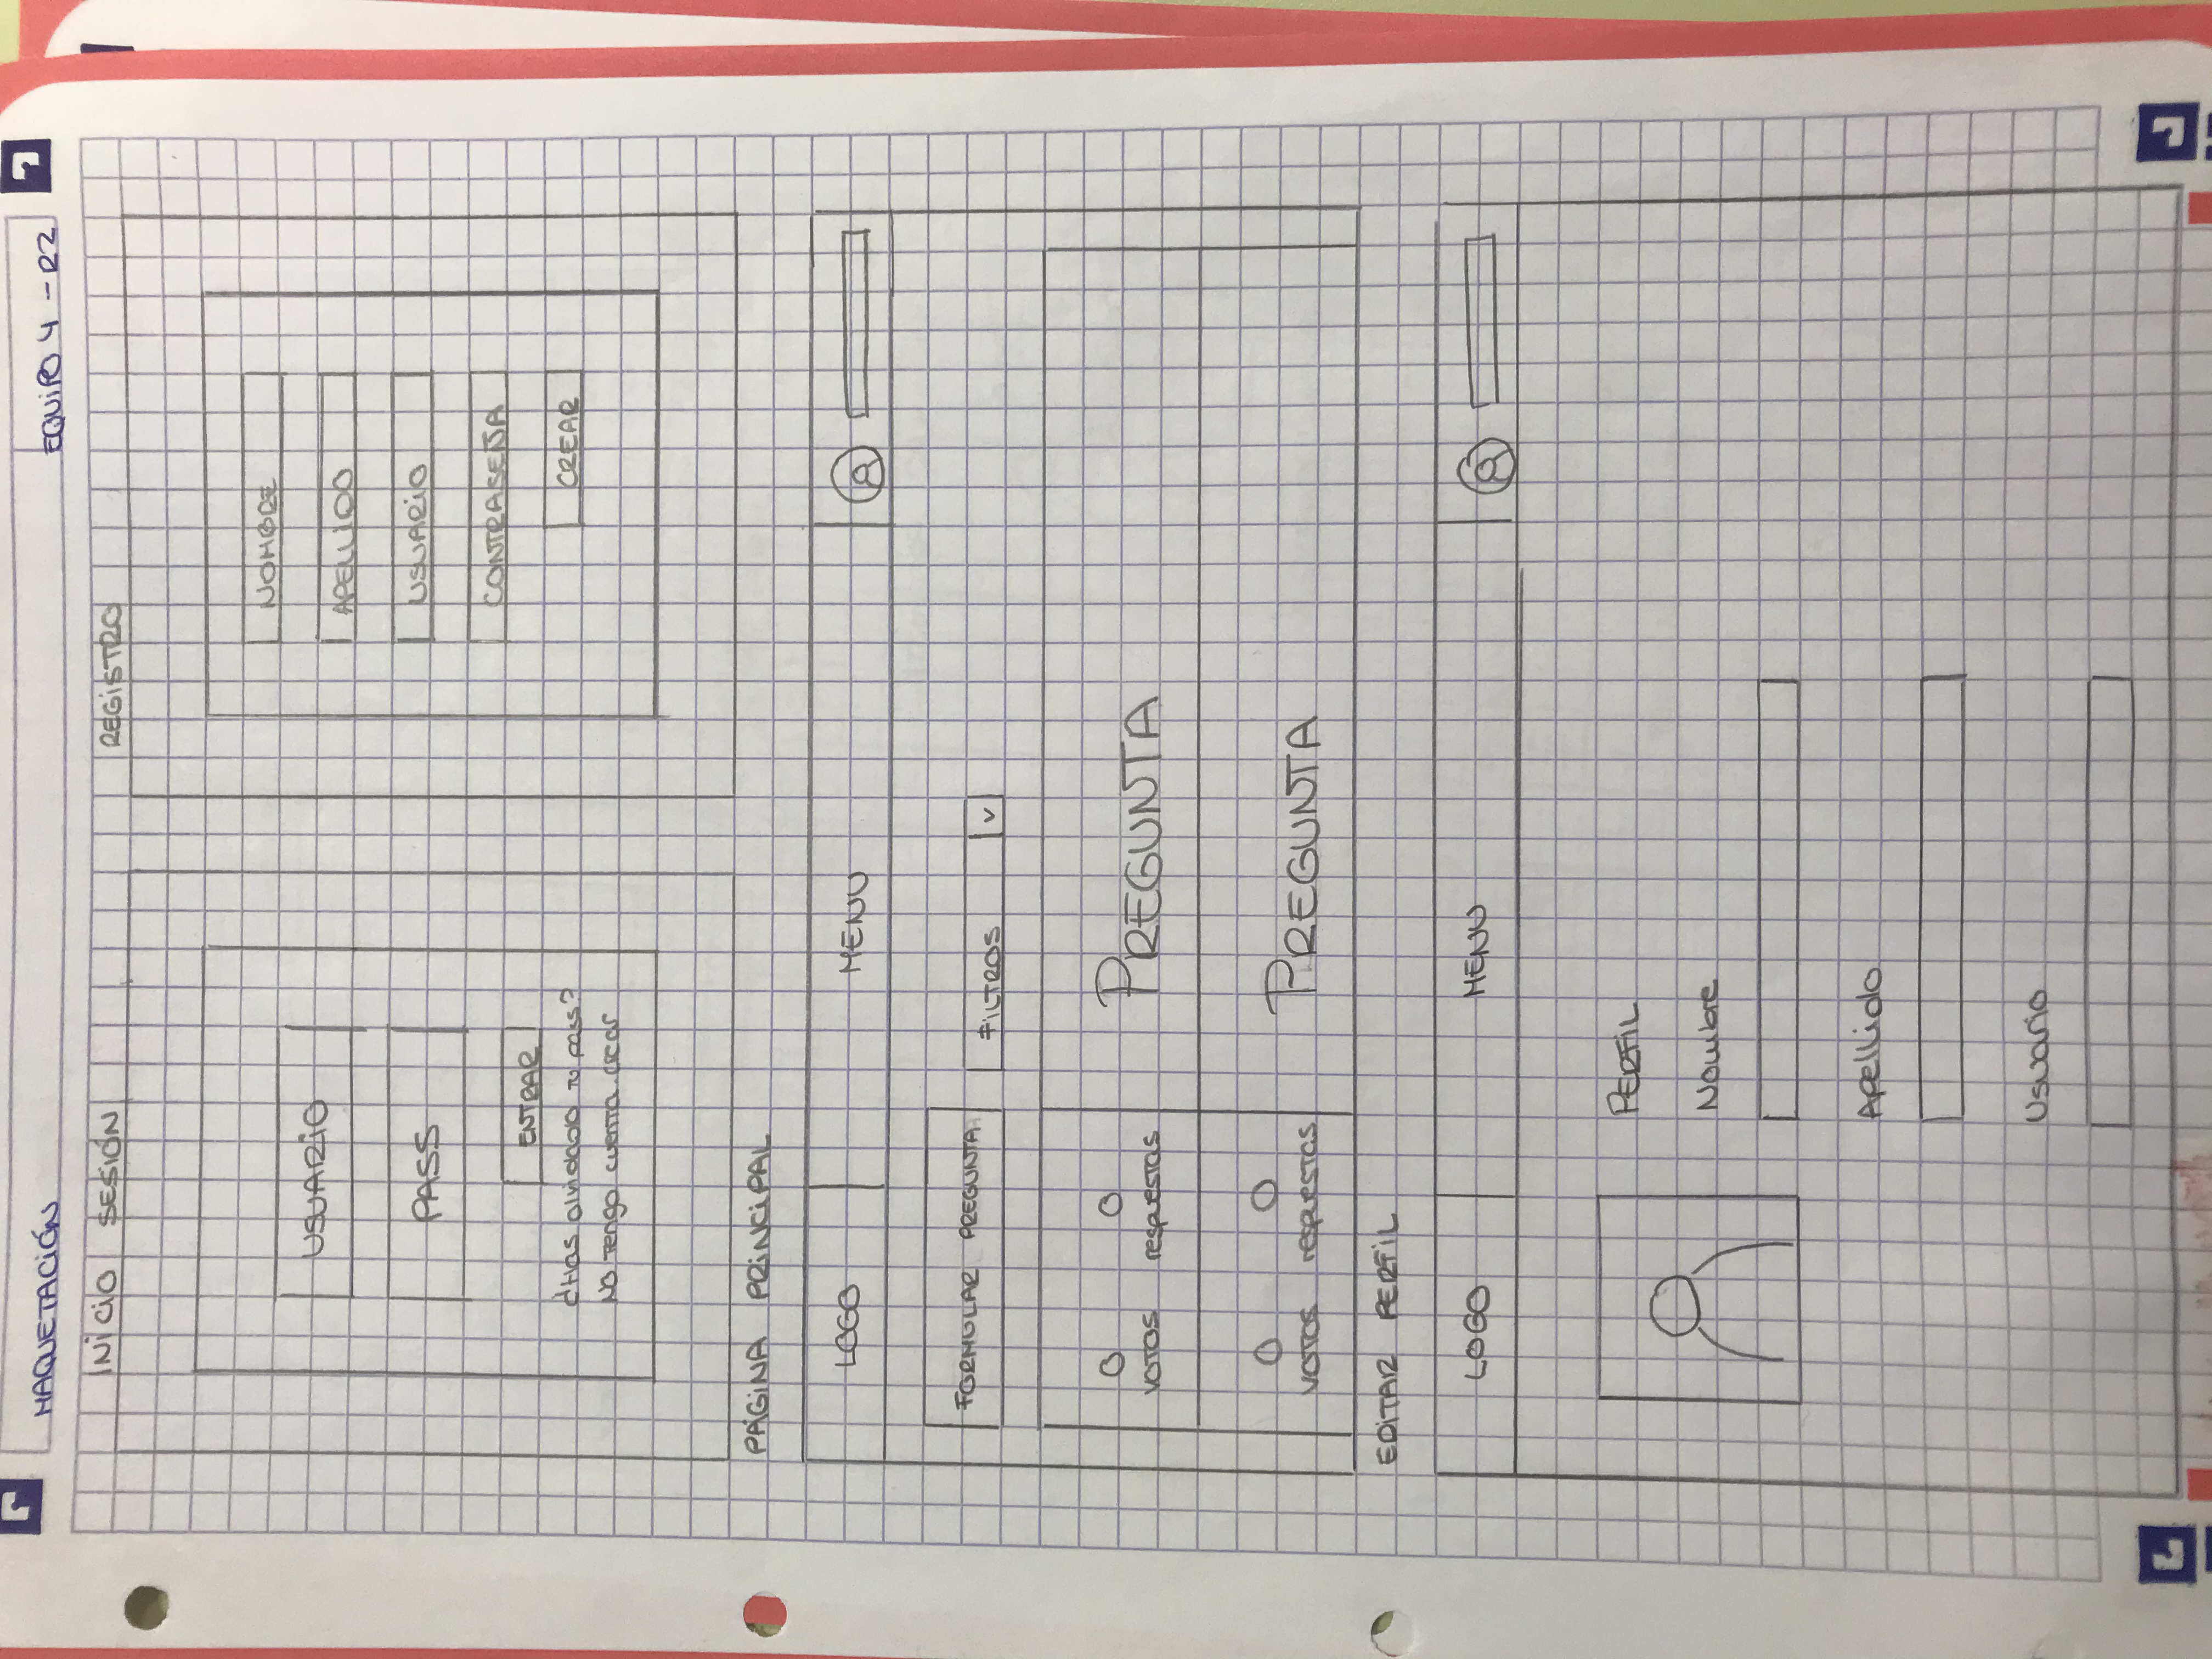 MAQUETACIÓN
EQUIPO 4 - R2
INICIO SESIÓN
USUARIO
PASS
ENTRAR
¿Has olvidado tu pass?
NO TENGO CUENTA. crear
REGISTRO
NOMBRE
APELLIDO
USUARIO
CONTRASEÑA
CREAR
PÁGINA PRINCIPAL
LOGO
MENU
FORMULAR PREGUNTA
FILTROS
V
VOTOS
respuestas
PREGUNTA
VOTOS
respuestas
PREGUNTA
EDITAR PERFIL
LOGO
MENU
PERFIL
Nombre
Apellido
Usuario